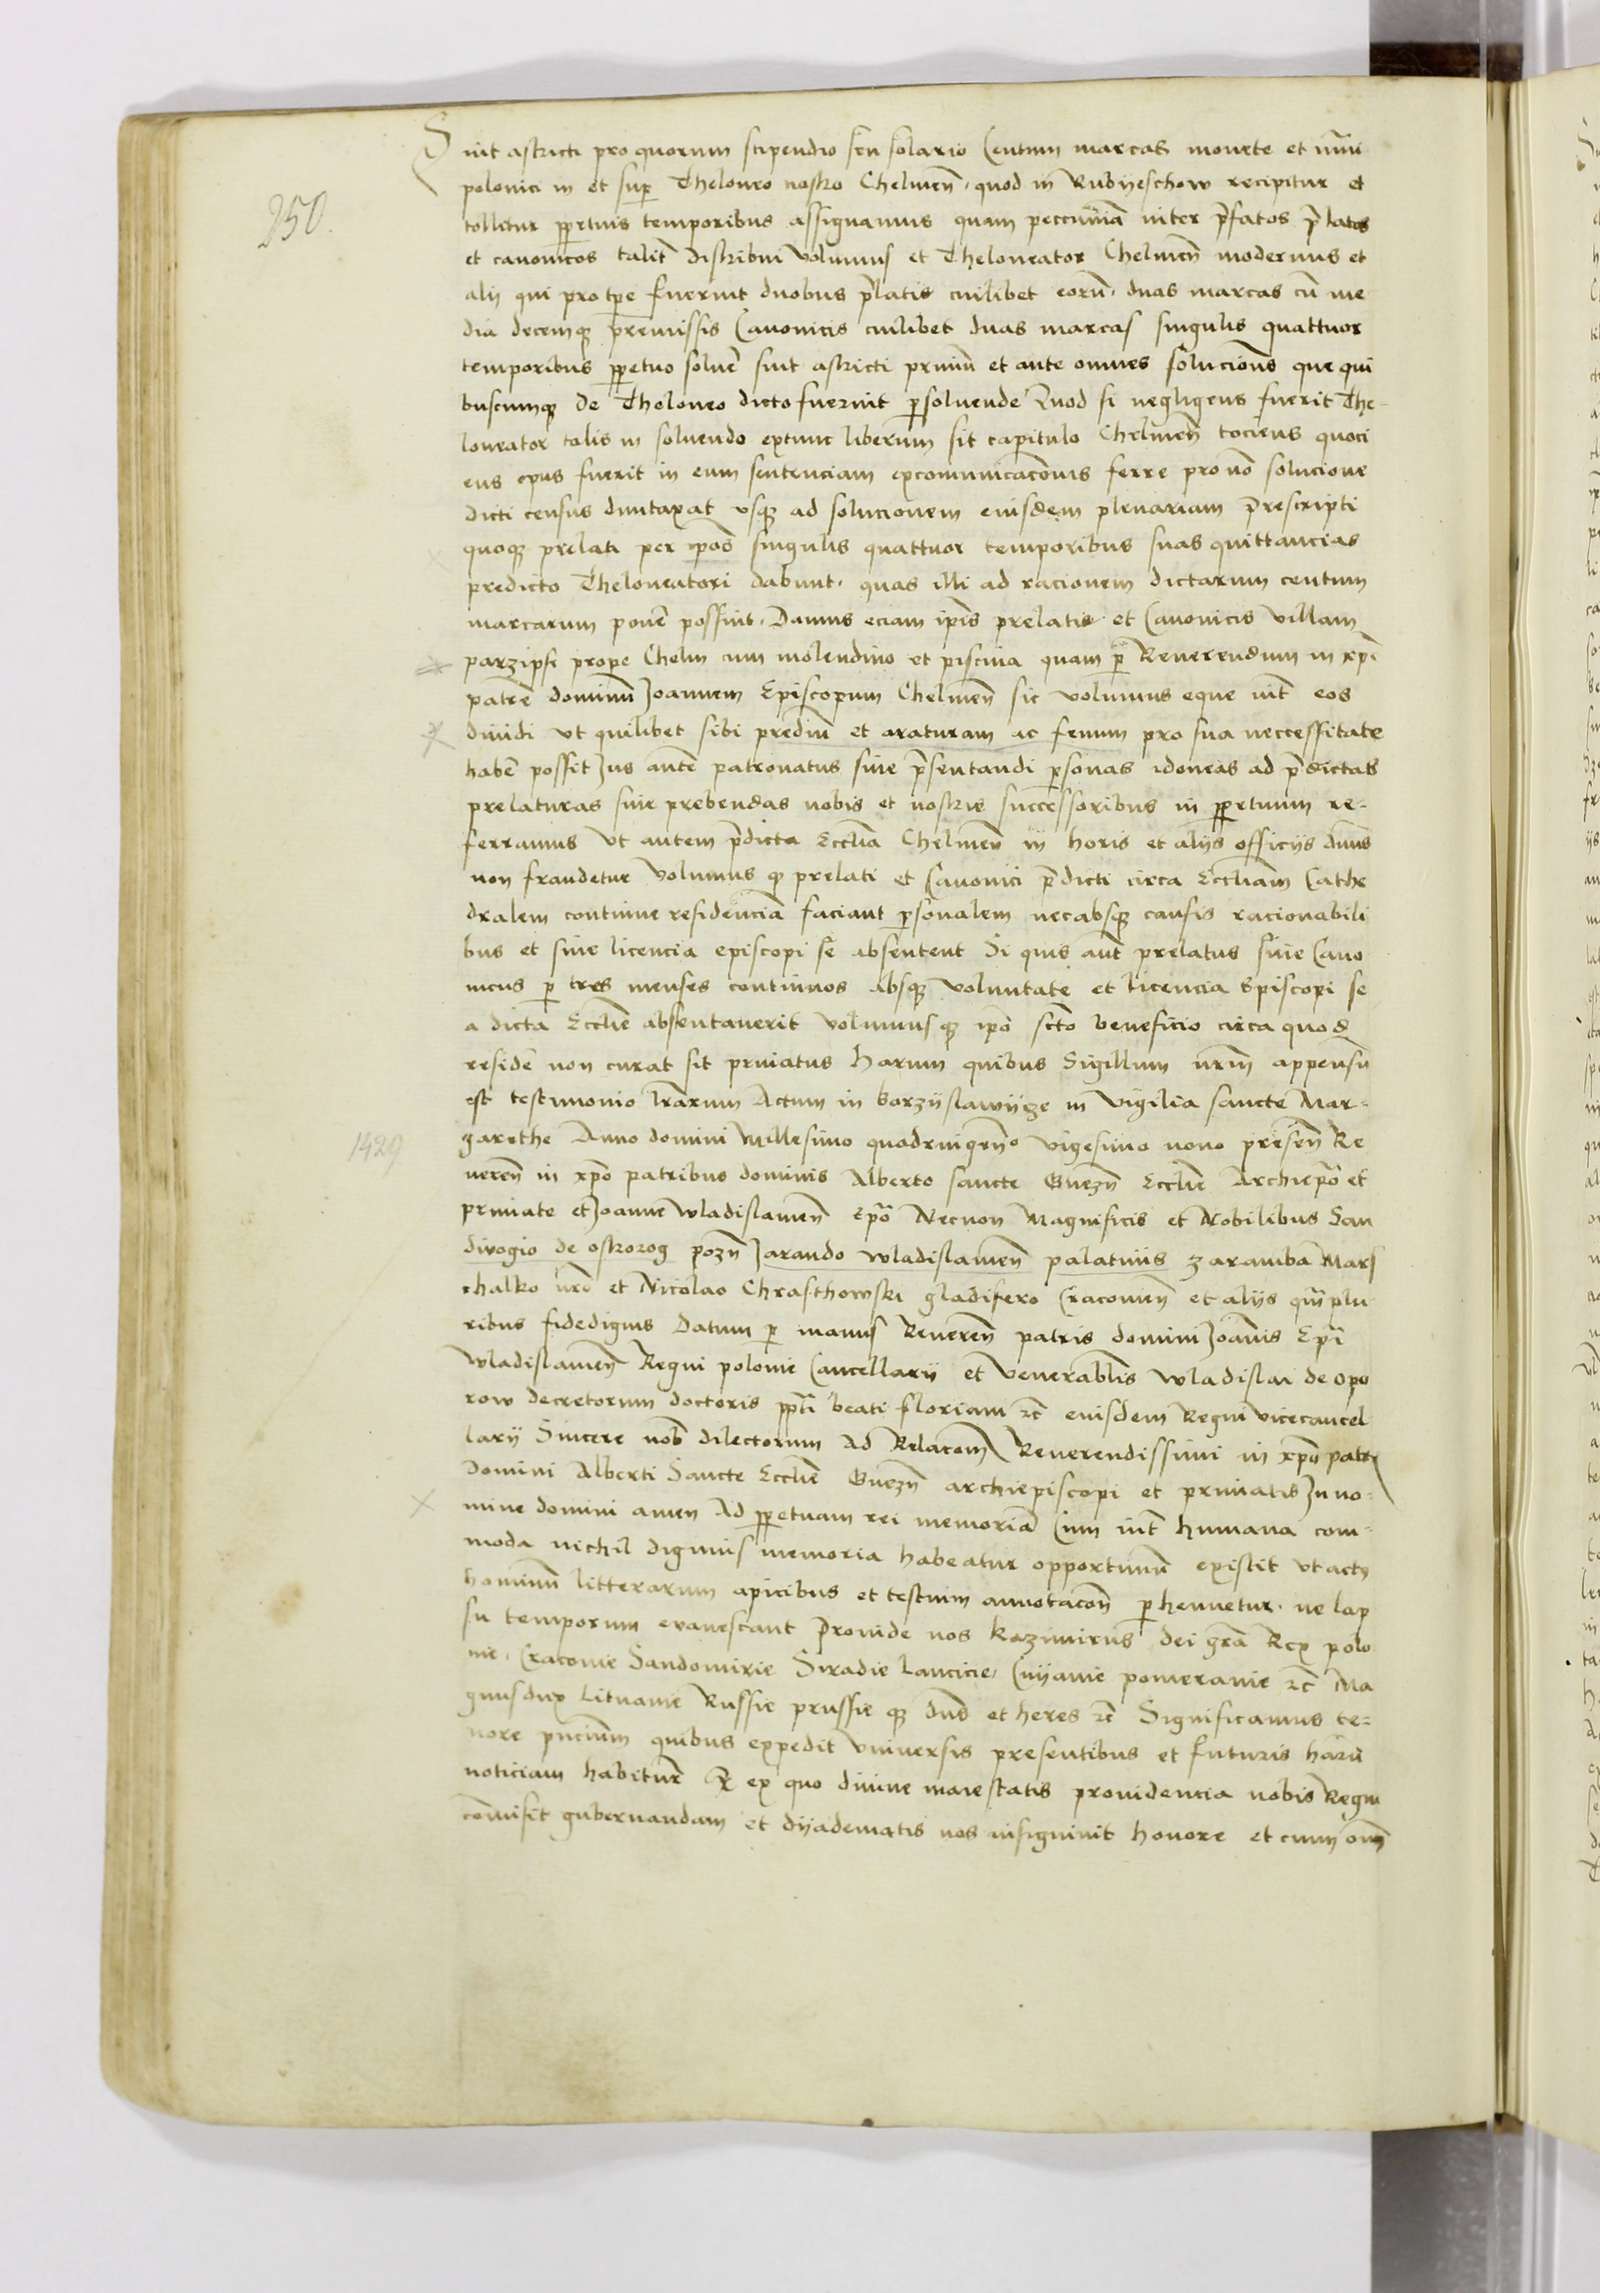 250.
Sint astricti pro quorum stipendio seu solario Centum marcas monete et nūmi
polonici in et super Theloneo nostro Chelmeñ. quod in Rubyeschow recipitur et
tollitur ppetuis temporibus assignamus quam peccuniā inter p̄fatos p̄latos
et canonicos talit̄ distribui volumus et Theloneator Chelmeñ modernus et
alij qui pro tp̄e fuerint duobus p̄latis cuilibet eorū. duas marcas cū me
dia decemq̨ premissis Canonicis cuilibet duas marcas singulis quattuor
temporibus ppetuo soluē sint astricti primū et ante omnes soluciōns que qui
buscumq̨ de Theloneo dicto fuerint p̱soluende Quod si negligens fuerit The-
loneator talis in soluendo extunc liberum sit capitulo Chelmeñ tociens quoci
ens opus fuerit in eum sentenciam excomunicacōnis ferre pro nō solucione
dicti census duntaxat vsq̨ ad solucionem eiusdem plenariam Prescripti
quoq̨ prelati per ip̄os singulis quattuor temporibus suas quittancias
predicto Theloneatori dabunt. quas illi ad racionem dictarum centum
marcarum ponē possint. Damus eciam ip̄is prelatis et Canonicis villam
parzipsi prope Chelm cum molendino et piscina quam p̱ Reuerendum in xp̄i
patrē dominū Joannem Episcopum Chelmeñ sic volumus eque int̄ eos
diuidi vt quilibet sibi prediū et araturam ac fenum pro sua neccessitate
habē possit Jus autē patronatus siue p̄sentandi p̱sonas idoneas ad p̄dictas
prelaturas siue prebendas nobis et nostris successoribus in ppetuum re-
ferramus Vt autem p̄dicta Ecclīa Chelmeñ in horis et alijs officijs diuis
non fraudetur Volumus q̨ prelati et Canonici p̄dicti circa Ecclīam Cathe
dralem continue residenciā faciant p̱sonalem nec absq̨ causis racionabili
bus et sine licencia episcopi se absentent Si quis aut̄ prelatus siue Cano
nicus p̱ tres menses continuos absq̨ voluntate et licencia Episcopi se
a dicta Ecclīe absentauerit volumus q̨ ip̄o fc̄to beneficio circa quod
residē non curat sit priuatus Harum quibus Sigillum nr̄m appensū
est testimonio lr̄arum Actum in Borzyslawycze in vigilia sancte Mar-
1429 garethe Anno domini Millesimo quadringenᵒ vigesimo nono presen̄ Re
ueren̄ in xp̄o patribus dominis Alberto sancte Gnezn̄ Ecclīe Archiepō et
primate et Joanne Wladislauien̄ Epō Necnon Magnificis et Nobilibus San
diuogio de ostrorog pozn̄ Jarando wladislauien̄ palatinis zaramba Mars
chalko nr̄o et Nicolao Chrasthowski gladifero Cracouien̄ et alijs qm̄plu
ribus fidedignis Datum p̱ manus Reueren̄ patris domini Joannis Ep̄i
Wladislauien̄ Regni polonie Cancellarij et Venerablis Wladislai de opo
row decretorum doctoris ppti beati floriani zc̄ eiusdem Regni vicecancel
larij Sincere nob̄ dilectorum Ad Relacōm̄ Reuerendissimi in xp̄o patri
domini Alberti Sancte Ecclīe Gnezn̄ archiepiscopi et primatis In no-
mine domini amen Ad ppetuam rei memoriā Cum int̄ humana com-
moda nichil dignius memoria habeatur opportunū existit vt actus
hominū litterarum apicibus et testium annotacōn̄ p̱hennetur. ne lap
su temporum euanescant Proinde nos Kazimirus dei grā Rex polo
nie. Cracouie Sandomirie Siradie Lancicie, Cuyauie pomeranie zc̄ Ma
gnus dux Lituanie Russie prussie q̨ dn̄s et heres zc̄ Significamus te-
nore pn̄cium quibus expedit Vniuersis presentibus et futuris harū
noticiam habitur̄ q̨ ex quo diuine maiestatis prouidencia nobis Regni
comisit gubernandam et dyadematis nos insigniuit honore et cum om̄